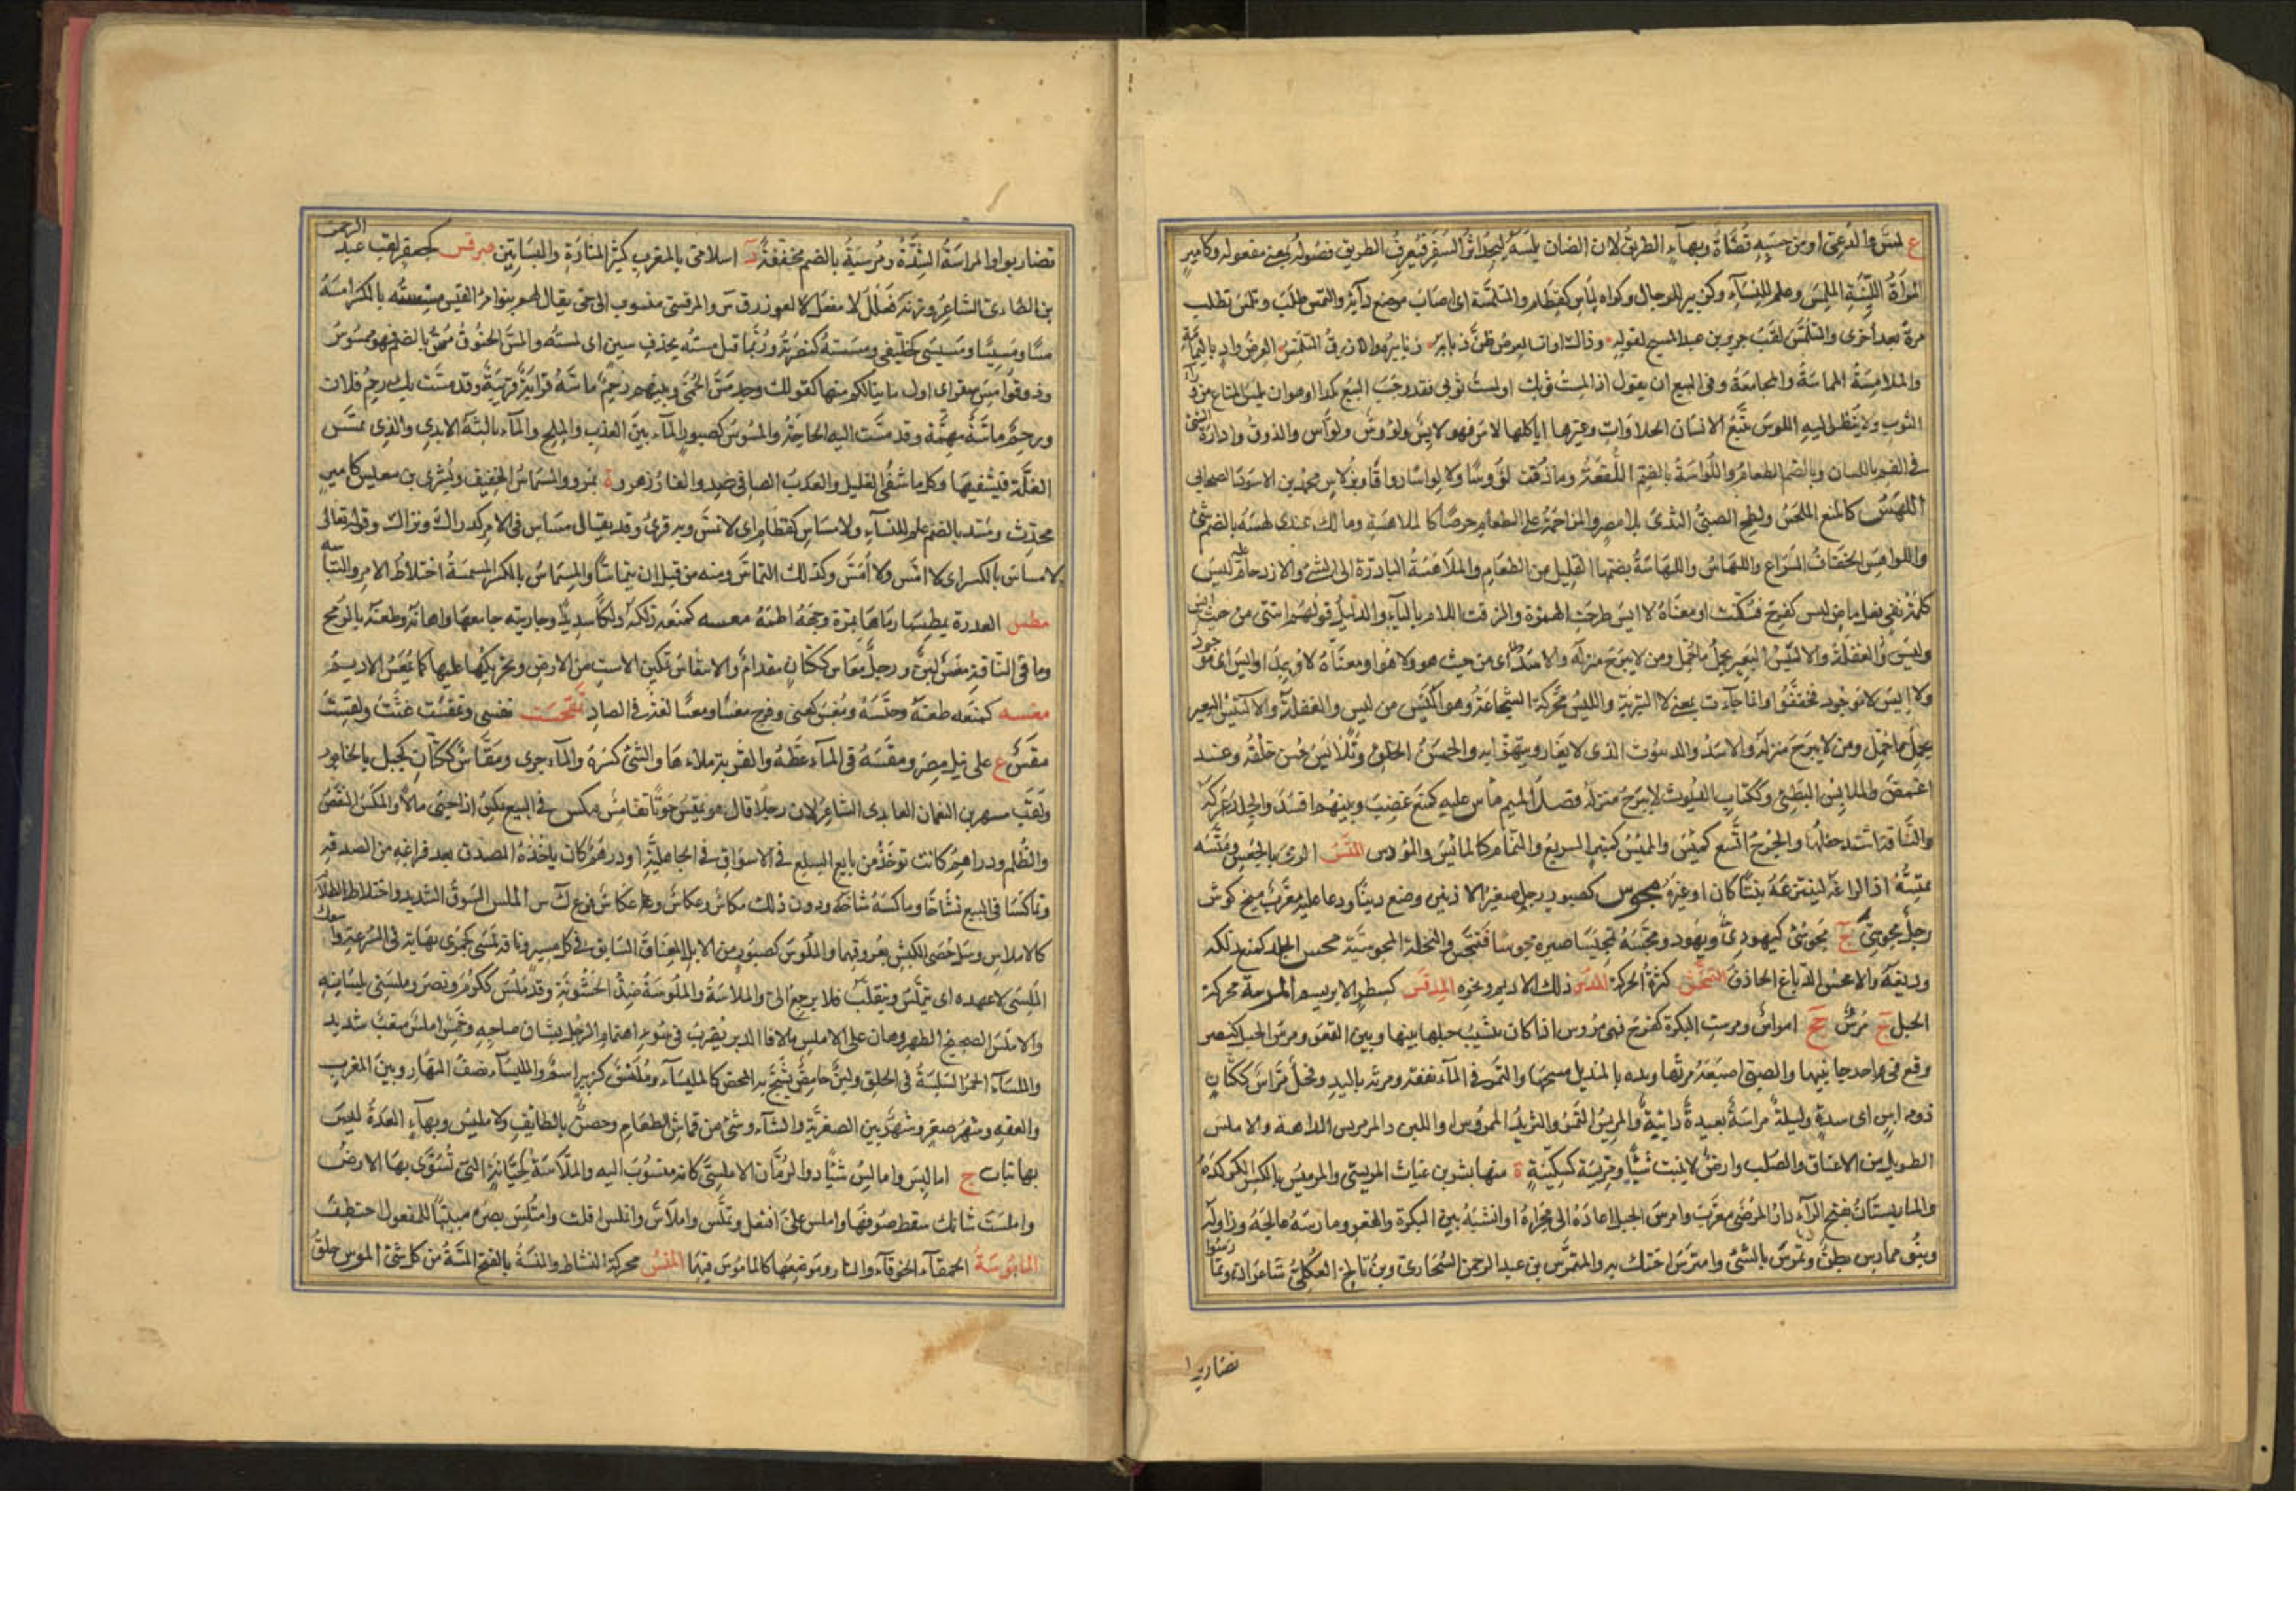 ع لمس والدعي او من حسبه قضاة وبهاء الطريق لان الضان يلسه ليجد اثر السفر فيعرف الطريق فعوله بمعنى مفعوله وكامير
المرأة اللينة الملمس وعلم للنساء وكزبير للرجال وكواه لماس كقطام والمتلمسة اى اصاب موضع دآئه والتمس طلب وتلمس تطلب
مرة بعد اخرى والمتلمس لقب جرير بن عبد المسيح لقوله وذاك اوان العرض طن ذبابه زنابيره والازرق المتلمس العرض واد باليمامة
والملامسة المماسة والمجامعة وفى البيع ان يقول اذا لمست ثوبك او لمست ثوبى فقد وجب البيع بكذا او هو ان يلمس المتاع من ورآء
الثوب ولا ينظر اليه اللوس تتبع الانسان الحلاوات وغيرها لياكلها لاس فهو لايس ولؤوس ولواس والذوق وادارة الشئ
فى الفم باللسان وبالضم الطعام واللواسة بالضم اللقمة وما ذقت لؤوسا ولا لواسا ذواقا وبولاس محمد بن الاسود الصحابى
اللهس كالمنع اللحس ولطع الصبى الثدى بلا مص والمزاحمة على الطعام حرصا كالملاهسة ومالك عندى لهسة بالضم شئ
واللواهس الخفاف السراع واللهاس واللهاسة بضمهما القليل من الطعام والملاهسة المبادرة الى الشئ والازدحام عليه ليس
كلمة نفى فعل ماض ليس كفرح فسكنت او معناه لا ايس طرحت الهمزة والزقت اللام باليآء والدليل قولهم ائتنى من حيث ايس
وليس والغفلة والاليس البعير يحمل ما حمل ومن لا يبرح منزله والاسد اى من حيث هو ولا هو او معناه لا وجد او ايس اى موجود
ولا ايس لا موجود فخففوا وانما جآءت بمعنى لا التبرئة والليس محركة الشجاعة وهو اليس من ليس والغفلة والاليس البعير
يحمل ما حمل ومن لا يبرح منزله والاسد والديوث الذى لا يغار ويتهزأ به والحسن الخلق وتلايس حسن خلقه وعنه
اغمض والملايس البطئ وككتاب الديوث لا يبرح منزله فصل الميم مأس عليه كمنع غضب وبينهم افسد والجلد عركه
والناقة اشتد حفلها والجرح اتسع كمئس والميس كمنبر السريع والنمام كالمائس والمؤوس المتس الرمى بالجعس ومتسه
يمتسه اذا اراغه لينتزعه نبتا كان او غيره مجوس كصبور رجل صغير الاذنين وضع دينا ودعا عليه معرب ميخ كوش
رجل مجوسى ج مجوس كيهودى ويهود ومجسه تمجيسا صيره مجوسا فتمجس والنحلة المجوسية محس الجلد كمنع دلكه
ودبغه والامحس الدباغ الحاذق التمخس كثرة الحركة المدس ذلك الاديم ونحوه المدقس كسبطر الابريسم المرسة محركة
الحبل ج مرس جج امراس ومرست البكرة كفرح فهى مروس اذا كان ينشب حبلها بينها وبين القعو ومرس الحبل كنصر
وقع فى احد جانبيها والصبى اصبعه مرثها ويده بالمنديل مسحها والتمر فى المآء نقعه ومرثه باليد وفحل مراس ككتان
ذو مراس اى شدة وليلة مراسة بعيدة دائبة والمريس التمر والثريد الممروس او اللبن والمرمريس الداهية والاملس
الطويل من الاعناق والصلب وارض لا تنبت شيئا ومريسة كسكينة ة منها بشر بن غياث المريسى والمرميس بالكسر الكركدن
والمارستان بفتح الرآء دار المرضى معرب وامرس الحبل اعاده الى مجراه او انشبه بين البكرة والقعو ومارسه عالجه وزاوله
وبنو ممارس بطن وتمرس بالشئ وامترس احتك به والمتمرس بن عبد الرحمن الصحارى وبن ثالج العكلى شاعران وتمارسوا
تضاربوا
تضاربوا والمراسة الشدة ومرسية بالضم مخففة د اسلامى بالمغرب كثير المنازه والبساتين مرقس كجعفر لقب عبد الرحمن
بن الطائى الشاعر وزنه فعلل لا مفعل لا لعوز رق س والمرقسى منسوب الى حى يقال لهم بنو امرئ القيس مسسته بالكسر امسه
مسا ومسيسا ومسيسى كخليفى ومسسته كنصرته وربما قيل مسته بحذف سين اى لمسته والمس الجنون مس بالضم فهو ممسوس
وذوقوا مس سقر اى اول ما ينالكم منها كقولك وجد مس الحمى وبينهم رحم ماسة قرابة قريبة وقد مست بك رحم فلان
ورحم ماسة مهمة وقد مست اليه الحاجة والمسوس كصبور المآء بين العذب والملح والمآء نالته الايدى والذى يمس
الغلة فيشفيها وكل ما شفى الغليل والعذب الصافى ضد والفازهر وة بمرو والمسماس الخفيف وبشرى بن مسيس كامير
محدث ومسة بالضم علم للنسآء ولا مساس كقطام اى لا تمس وبه قرئ وقد يقال مساس فى الامر كدراك ونزال وقوله تعالى
لا مساس بالكسر اى لا امس ولا امس وكذلك التماس ومنه من قبل ان يتماسا والمسماس بالكسر المسمسة اختلاط الامر والتباسه
مطس العذرة يمطسها رماها بمرة وجهه لطمه معسه كمنعه دلكه دلكا شديدا وجاريته جامعها واهانه وطعنه بالرمح
وما فى الناقة معس لبن ورجل معاس ككتان مقدام والامتعاس تمكين الاست من الارض وتحريكها عليها كما يمعس الاديم
مغسه كمنعه طعنه وجسه ومغس كعنى وفرح مغسا ومغسا لغة فى الصاد تمقست نفسى وتمقست غثت ولقست
مقس ع على نيل مصر ومقسه فى المآء غطه والقربة ملاءها والشئ كسره والمآء جرى ومقاس ككتان جبل بالخابور
ولقب مسهر بن النعمان العايذى الشاعر لان رجلا قال هو يمقس تماقس مكس فى البيع يمكس اذا جبى مالا والمكس النقص
والظلم ودراهم كانت توخذ من بايع السلع فى الاسواق فى الجاهلية او درهم كان ياخذه المصدق بعد فراغه من الصدقة
وتماكسا فى البيع تشاحا وماكسه شاحه ودون ذلك مكاس وعكاس فى ع ك س الملس السوق الشديد واختلاط الظلام
كالاملاس وسل خصيى الكبش بعروقهما والملوس كصبور من الابل المعناق السابق فى كل مسير وناقة ملسى كجمزى نهاية فى السرعة وابيعك
الملسى لا عهدة اى يتملس ويتفلت فلا يرجع الى والملاسة والملوسة ضد الخشونة وقد ملس ككرم ونصر وملسنى بلسانه
والاملس الصحيح الظهر وهان على الاملس ما لاقى الدبر يضرب فى سوء اهتمام الرجل بشان صاحبه وخمس املس متعب شديد
والملسآء الخمر السلسة فى الحلق ولبن حامض يشج به المحض كالمليسآء وملس كزبير اسم والمليسآء نصف النهار وبين المغرب
والعتمة وشهر صفر وشهر بين الصفرية والشتآء وشئ من قماش الطعام وحصن بالطائف والامليس وبهآء الفلاة ليس
بها نبات ج اماليس وامالس شاذ والرمان الامليسى كانه منسوب اليه والملاسة كجبانة التى تسوى بها الارض
واملست شاتك سقط صوفها واملس على افتعل وتملس واملاس وانملس افلت وامتلس بصره مبنيا للمفعول اختطف
المابوسة الحمقآء الخرقآء والنار وموضعها كالماموس فيهما المنس محركة النشاط والمنسة بالفتح المسنة من كل شئ الموس حلق